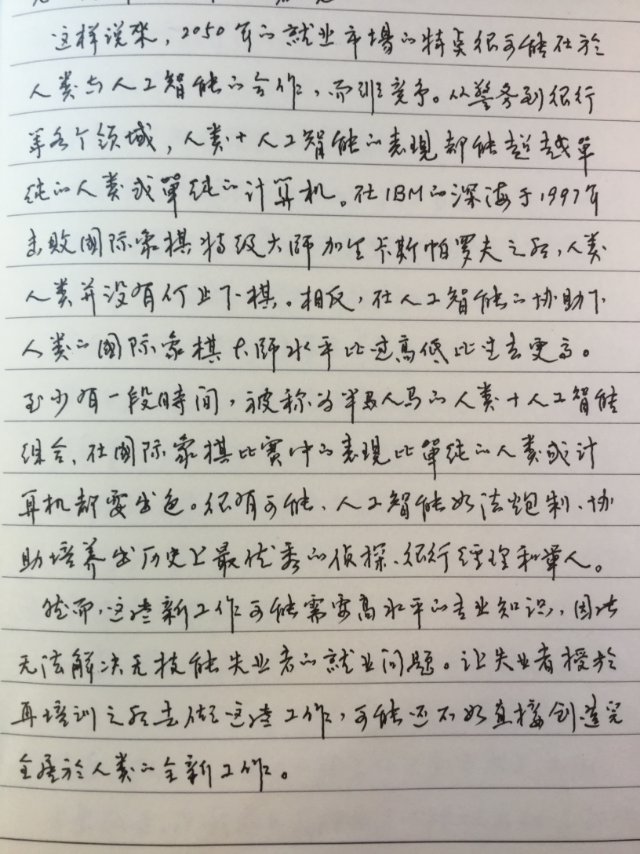 这样说来，2050年的就业市场的特点很可能在於
人类与人工智能的合作，而非竞争。从警务到银行
等各个领域，人类+人工智能的表現都能超越單
纯的人类或單纯的计算机。在IBM的深海于1997年
击败國际象棋特级大师加里卡斯帕罗夫之后，人类
人类并没有停止下棋。相反，在人工智能的协助下
人类的國际象棋大师水平比过高低比过去更高。
至少有一段時间，被称为半人马的人类+人工智能
组合，在國际象棋比赛中的表現比單纯的人类或计
算机都要出色。很有可能，人工智能如法炮制，协
助培养出历史上最优秀的侦探、银行经理和軍人。
然而，这些新工作可能需要高水平的专业知识，因此
无法解决无技能失业者的就业问题。让失业者授於
再培训之后去做这些工作，可能还不如直接创造完
全屬於人类的全新工作。